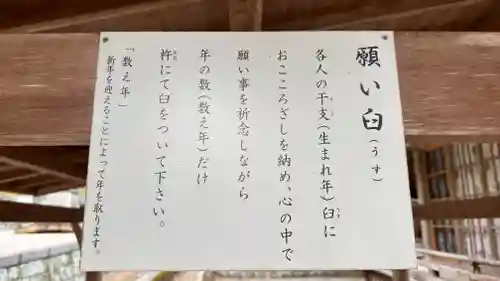 願い臼(うす)
各人の干支(生まれ年)臼に
おこころざしを納め、心の中で
願い事を祈念しながら
年の数(数え年)だけ
杵にて臼をついて下さい。
「数え年」
新年を迎えることによって年を取ります。